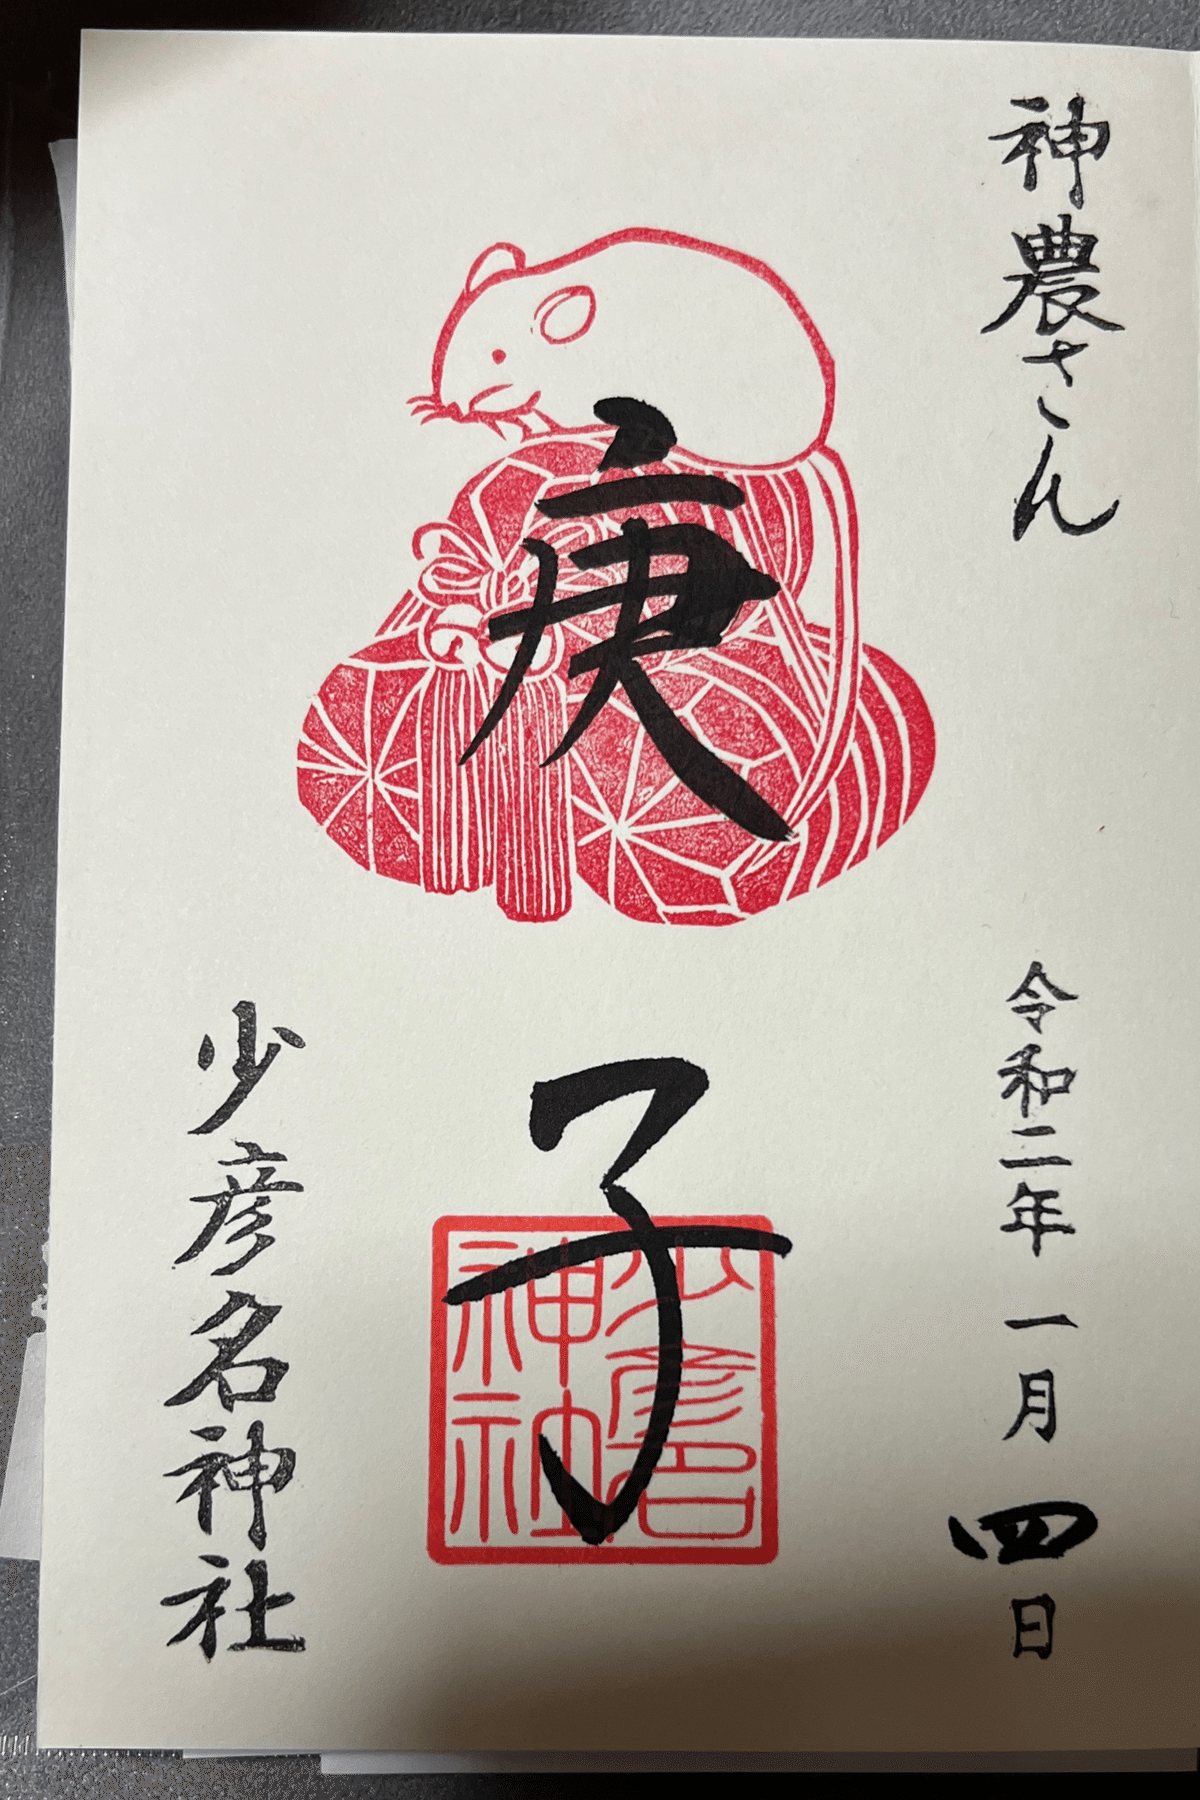 神農さん
令和二年 一月 四日
庚子
少彦名神社
少彦名
神社